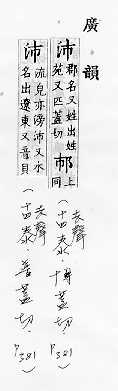 廣韻
沛郡名又姓出姓
苑又匹蓋切
上
同
(去聲
十四泰·博蓋切, P381)
沛流皃亦滂沛又水
名出遼東又音貝
(去聲
十四泰·普蓋切, P381)